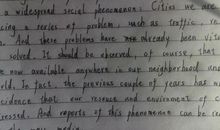 a widespread social phenomenon. Cities we are
cing a series of problem, such as traffic
. And these problems have not already been vital
solved. It should be observed, of course, that
now available anywhere in our neighborhood and
ld. In fact the previous couple of years has
cidence that our resource and environment of
ressed. And reports of this phenomenon can be
media